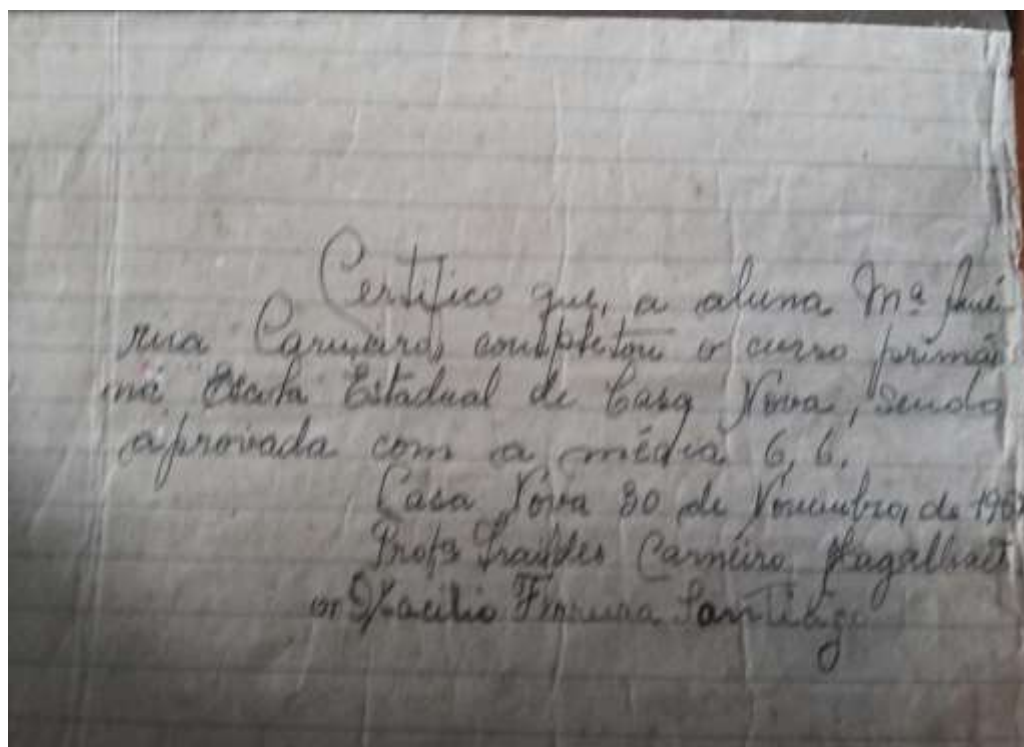 Certifico que, a aluna Mª
Carneiro, completou o curso primá
na Escola Estadual de Casa Nova, sendo
aprovada com a média 6,6.
Casa Nova 30 de Novembro, de
Profª Carneiro
Ferreira Santiago